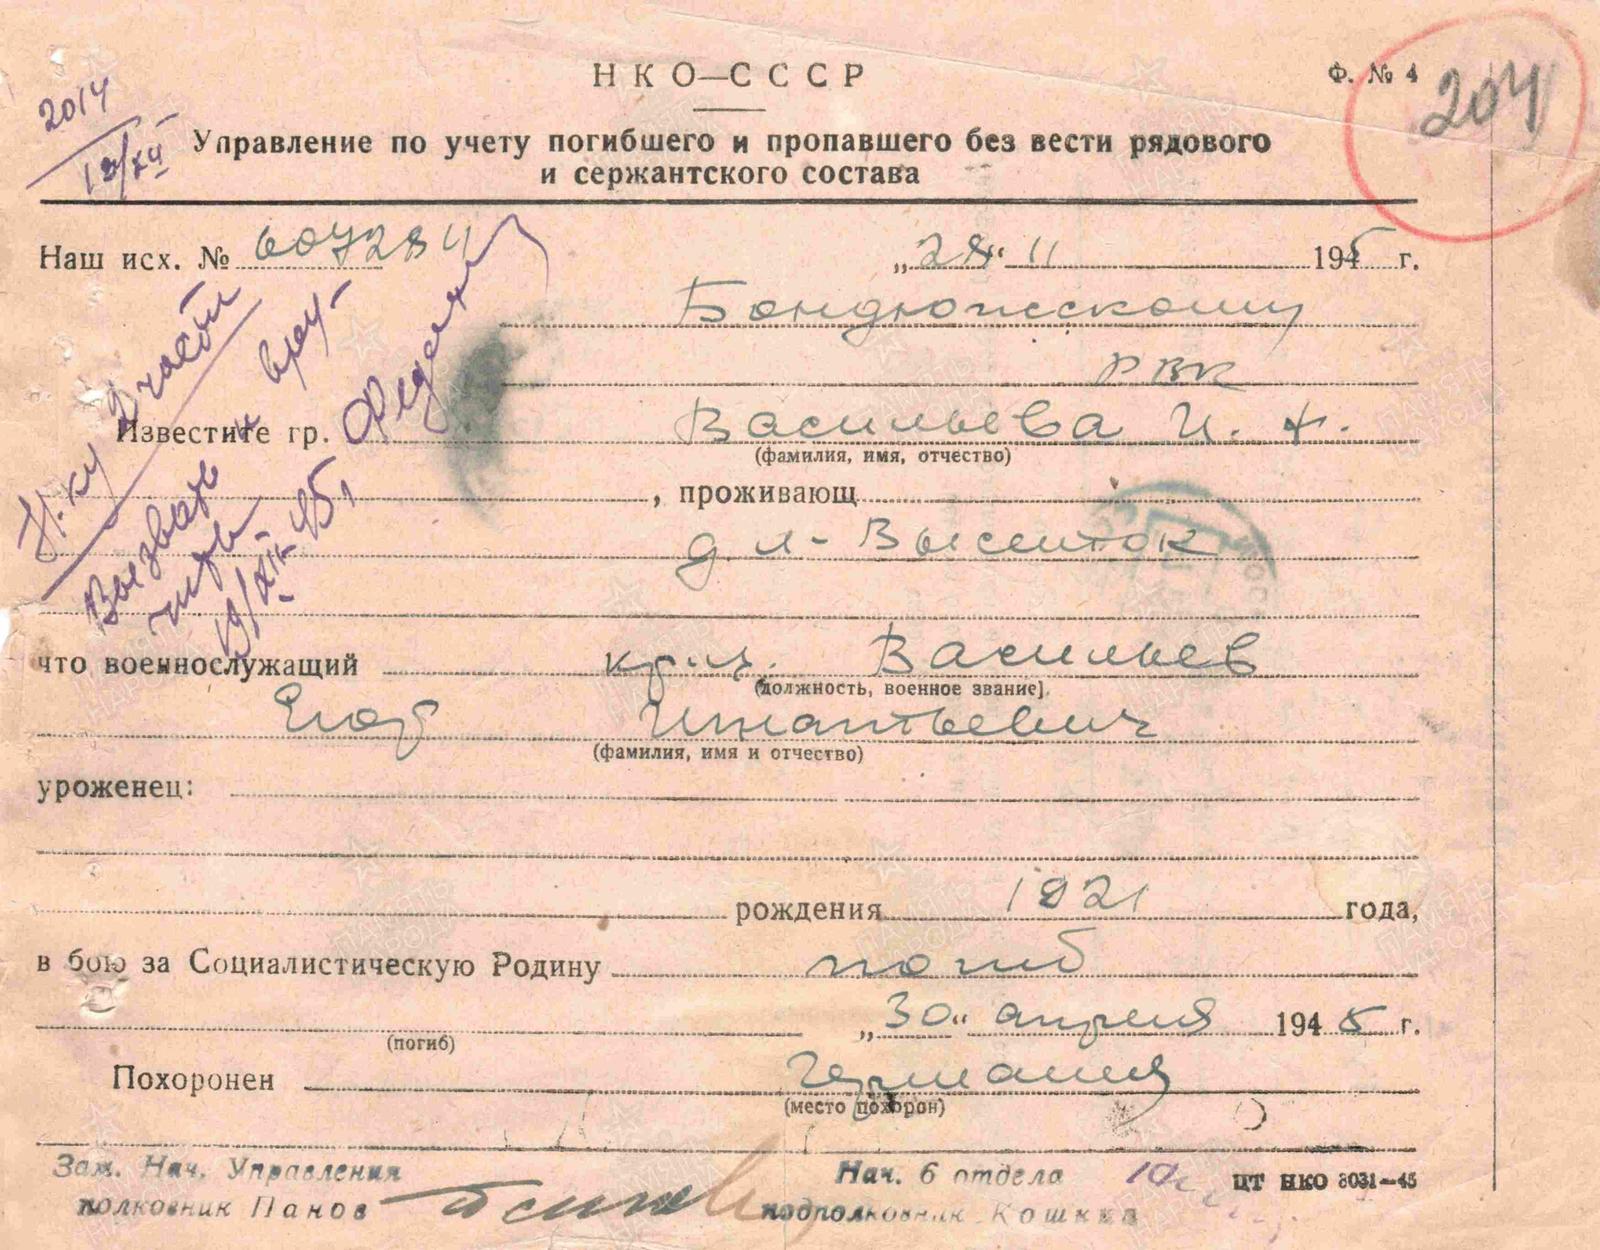 НКО—СССР
Ф. № 4
204
2014
19/XII
Управление по учету погибшего и пропавшего без вести рядового
и сержантского состава
Наш исх. № 607284 „28“ 11 1945 г.
Бондюжскому
РВК
Известите гр. Васильева И. Ф.
(фамилия, имя, отчество)
, проживающ
что военнослужащий кр-ц. Васильев
(должность, военное звание)
Егор Игнатьевич
(фамилия, имя и отчество)
уроженец:
рождения 1921 года,
в бою за Социалистическую Родину погиб
„30“ апреля 1945 г.
(погиб)
Похоронен Германия
(место похорон)
Н-ку 2 части
Вызвать и вру-
чить
19/XII-45,
Зам. Нач. Управления
полковник Панов
Нач. 6 отдела
подполковник Кошкин
ЦТ НКО 3031—45